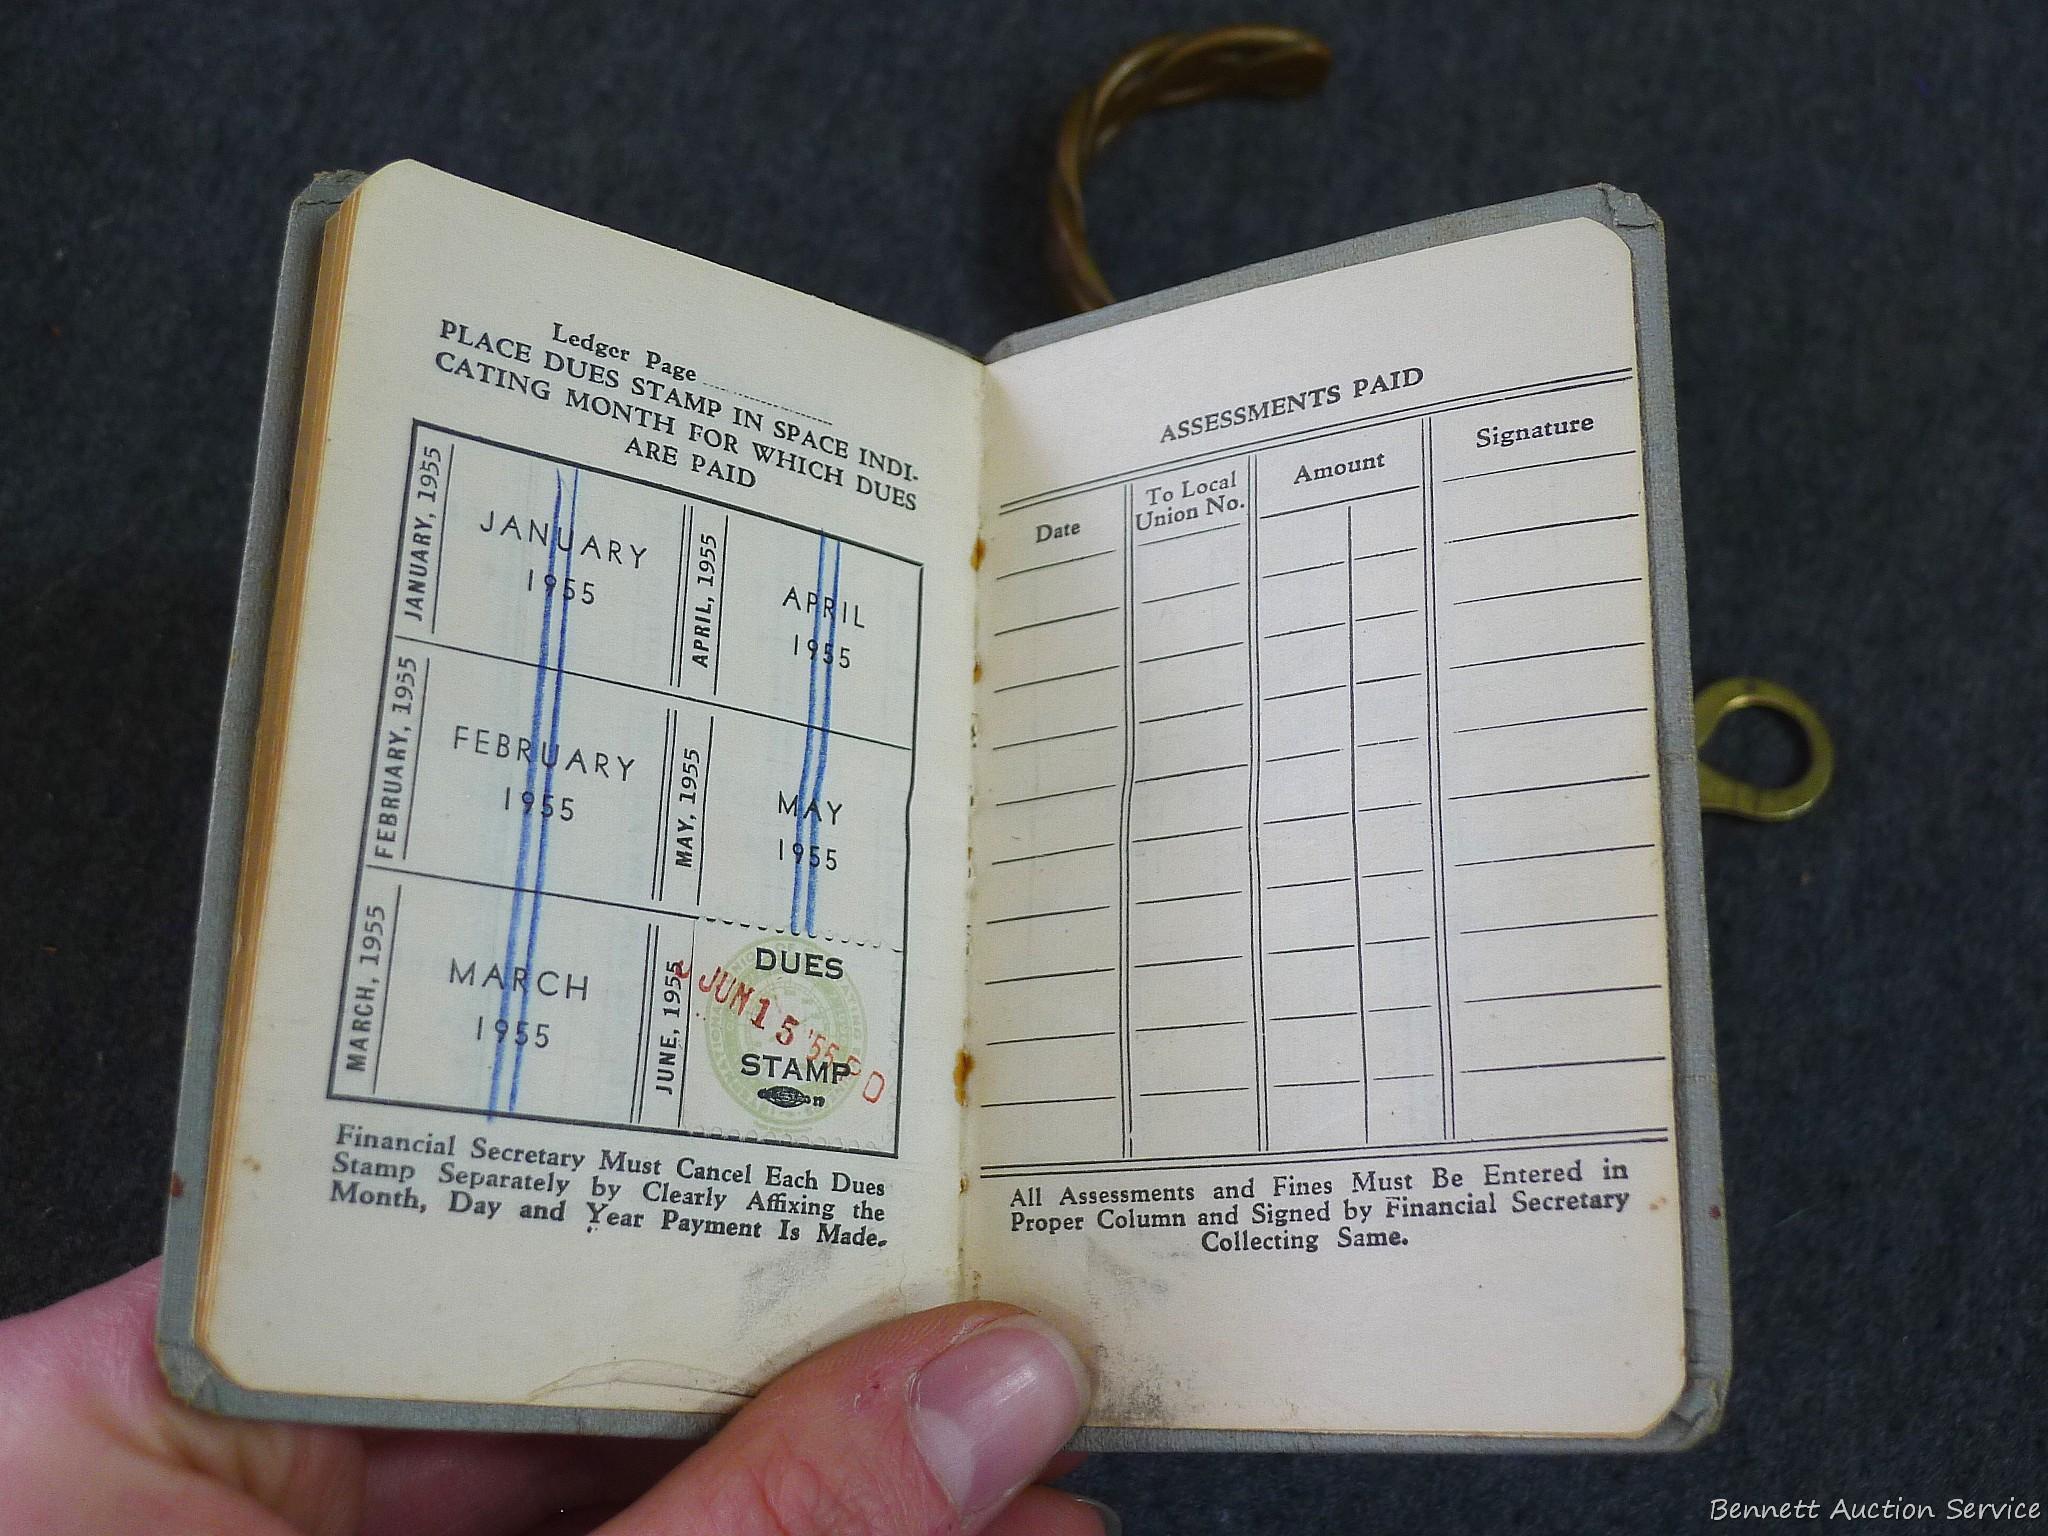 Ledger Page
PLACE DUES STAMP IN SPACE INDI-
CATING MONTH FOR WHICH DUES
ARE PAID
JANUARY, 1955
JANUARY
1955
APRIL, 1955
APRIL
1955
FEBRUARY, 1955
FEBRUARY
1955
MAY, 1955
MAY
1955
MARCH, 1955
MARCH
1955
JUNE, 1955
DUES
JUN 15 '55
STAMP
Financial Secretary Must Cancel Each Dues
Stamp Separately by Clearly Affixing the
Month, Day and Year Payment Is Made.
ASSESSMENTS PAID
Date
To Local
Union No.
Amount
Signature
All Assessments and Fines Must Be Entered in
Proper Column and Signed by Financial Secretary
Collecting Same.
Bennett Auction Service